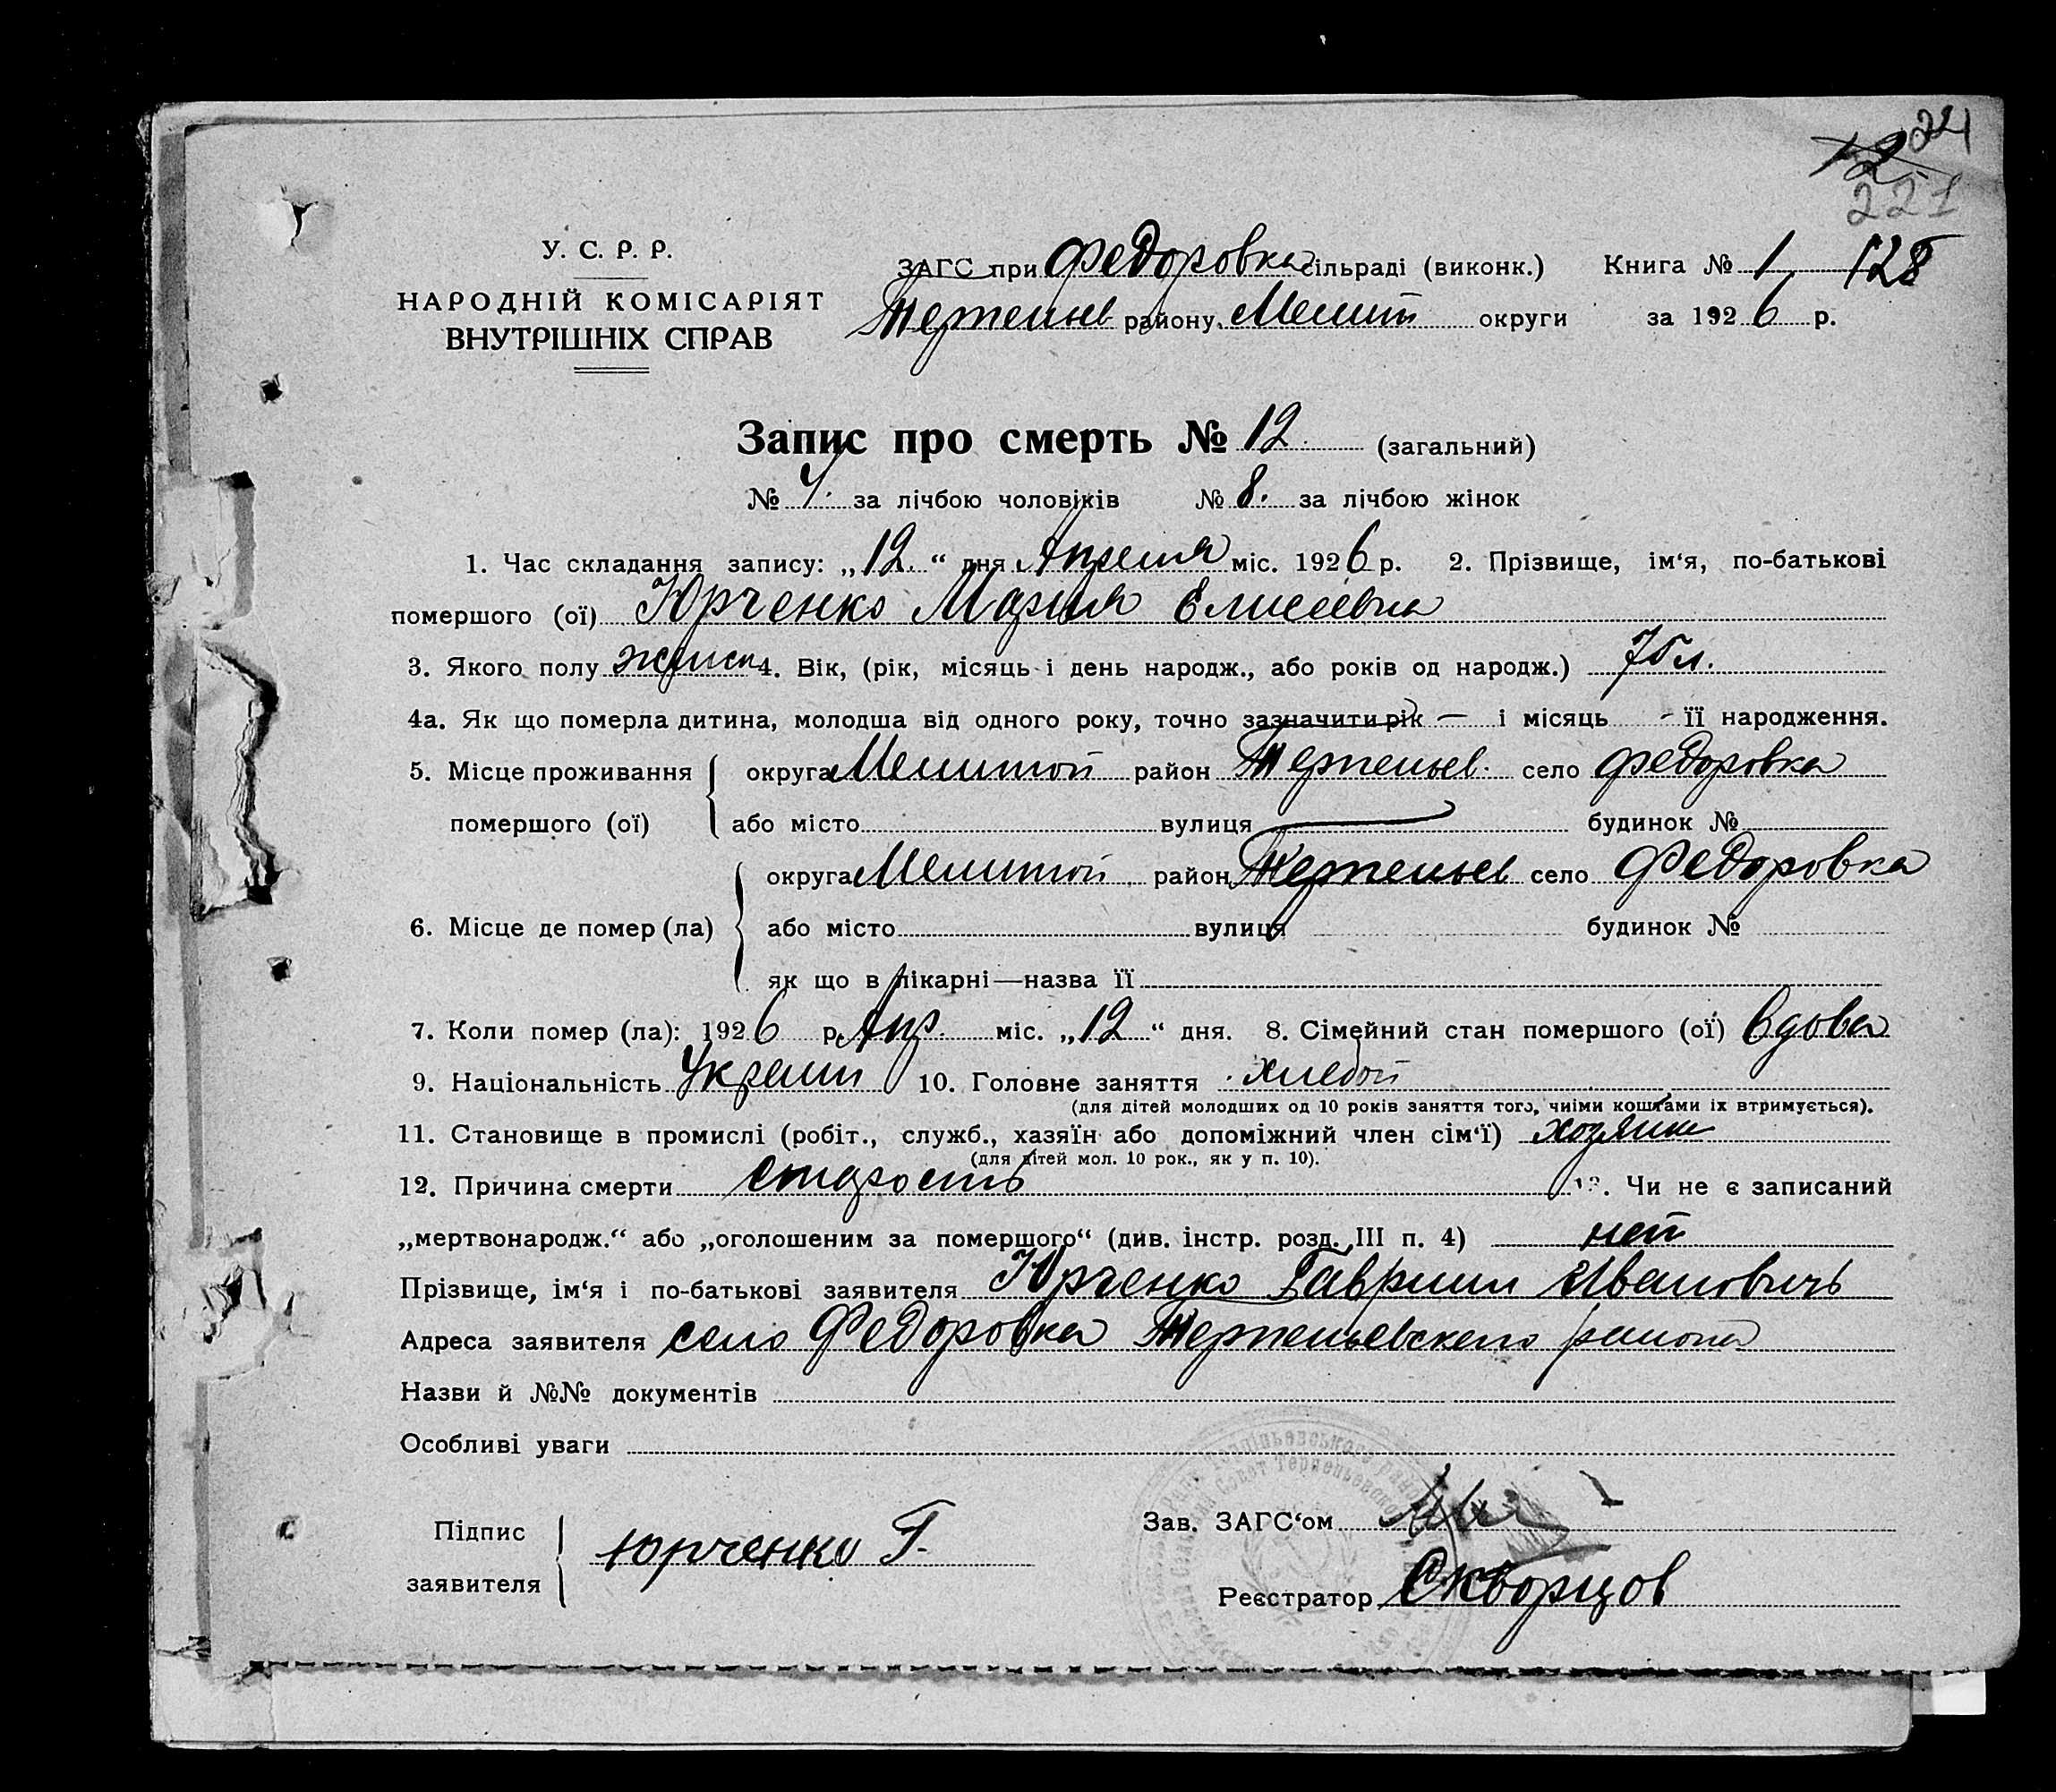 24
12
221
У. С. Р. Р.
НАРОДНІЙ КОМІСАРІЯТ
ВНУТРІШНІХ СПРАВ
ЗАГС при Федоровка сільраді (виконк.) Книга № 1 128
Терпеньев району Мелит округи за 1926 р.
Запис про смерть № 12 (загальний)
№ 4. за лічбою чоловіків № 8. за лічбою жінок
1. Час складання запису: „12.“ дня Апреля міс. 1926 р. 2. Прізвище, ім‘я, по-батькові
помершого (ої) Юрченко Мария Елисеевна
3. Якого полу женск 4. Вік, (рік, місяць і день народж., або років од народж.) 75 л.
4а. Як що померла дитина, молодша від одного року, точно зазначити рік — і місяць - її народження.
5. Місце проживання округа Мелитоп район Терпеньев. село Федоровка
помершого (ої) або місто вулиця будинок №
округа Мелитоп район Терпеньев село Федоровка
6. Місце де помер (ла) або місто вулиця будинок №
як що в лікарні—назва її
7. Коли помер (ла): 1926 р. Апр. міс. „12“ дня. 8. Сімейний стан помершого (ої) вдова
9. Національність Украин 10. Головне заняття хлебоп
(для дітей молодших од 10 років заняття того, чиїми коштами їх втримується).
11. Становище в промислі (робіт., служб., хазяїн або допоміжний член сім‘ї) хозяин
(для дітей мол. 10 рок., як у п. 10).
12. Причина смерти старость 13. Чи не є записаний
„мертвонародж.“ або „оголошеним за помершого“ (див. інстр. розд. III п. 4) нет
Прізвище, ім‘я і по-батькові заявителя Юрченко Гавриил Ивановичь
Адреса заявителя село Федоровка Терпеньевского района
Назви й №№ документів
Особливі уваги
Підпис
заявителя
Юрченко Г.
Зав. ЗАГС‘ом
Реєстратор Скворцов